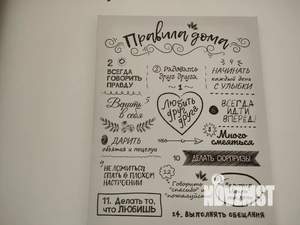 Правила дома
2
ВСЕГДА
ГОВОРИТЬ
ПРАВДУ
Радовать
друг друга
3
НАЧИНАТЬ
каждый день
С УЛЫБКИ
1
Любить
друг
друга
Верить
в себя
ВСЕГДА
ИДТИ
ВПЕРЕД!
ДАРИТЬ
объятия и поцелуи
Много
смеяться
НЕ ЛОЖИТЬСЯ
СПАТЬ В ПЛОХОМ
НАСТРОЕНИИ
10
ДЕЛАТЬ СЮРПРИЗЫ
12
Говорить
"спасибо" и
"пожалуйста"
11. Делать то,
что ЛЮБИШЬ
14. ВЫПОЛНЯТЬ ОБЕЩАНИЯ